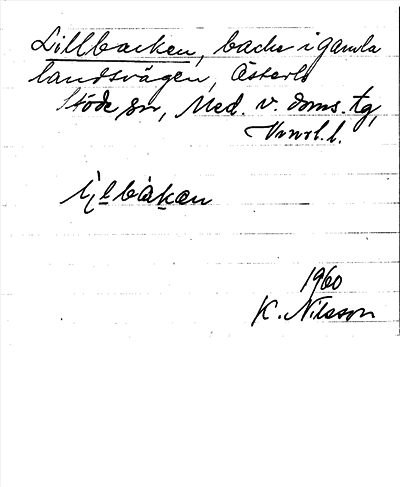 Lillbacken, backe i gamla
landsvägen, Österlo
Stöde sn, Med. v. doms. tg,
Vnorl. l.
lı̨lbàkan
1960
K. Nilsson